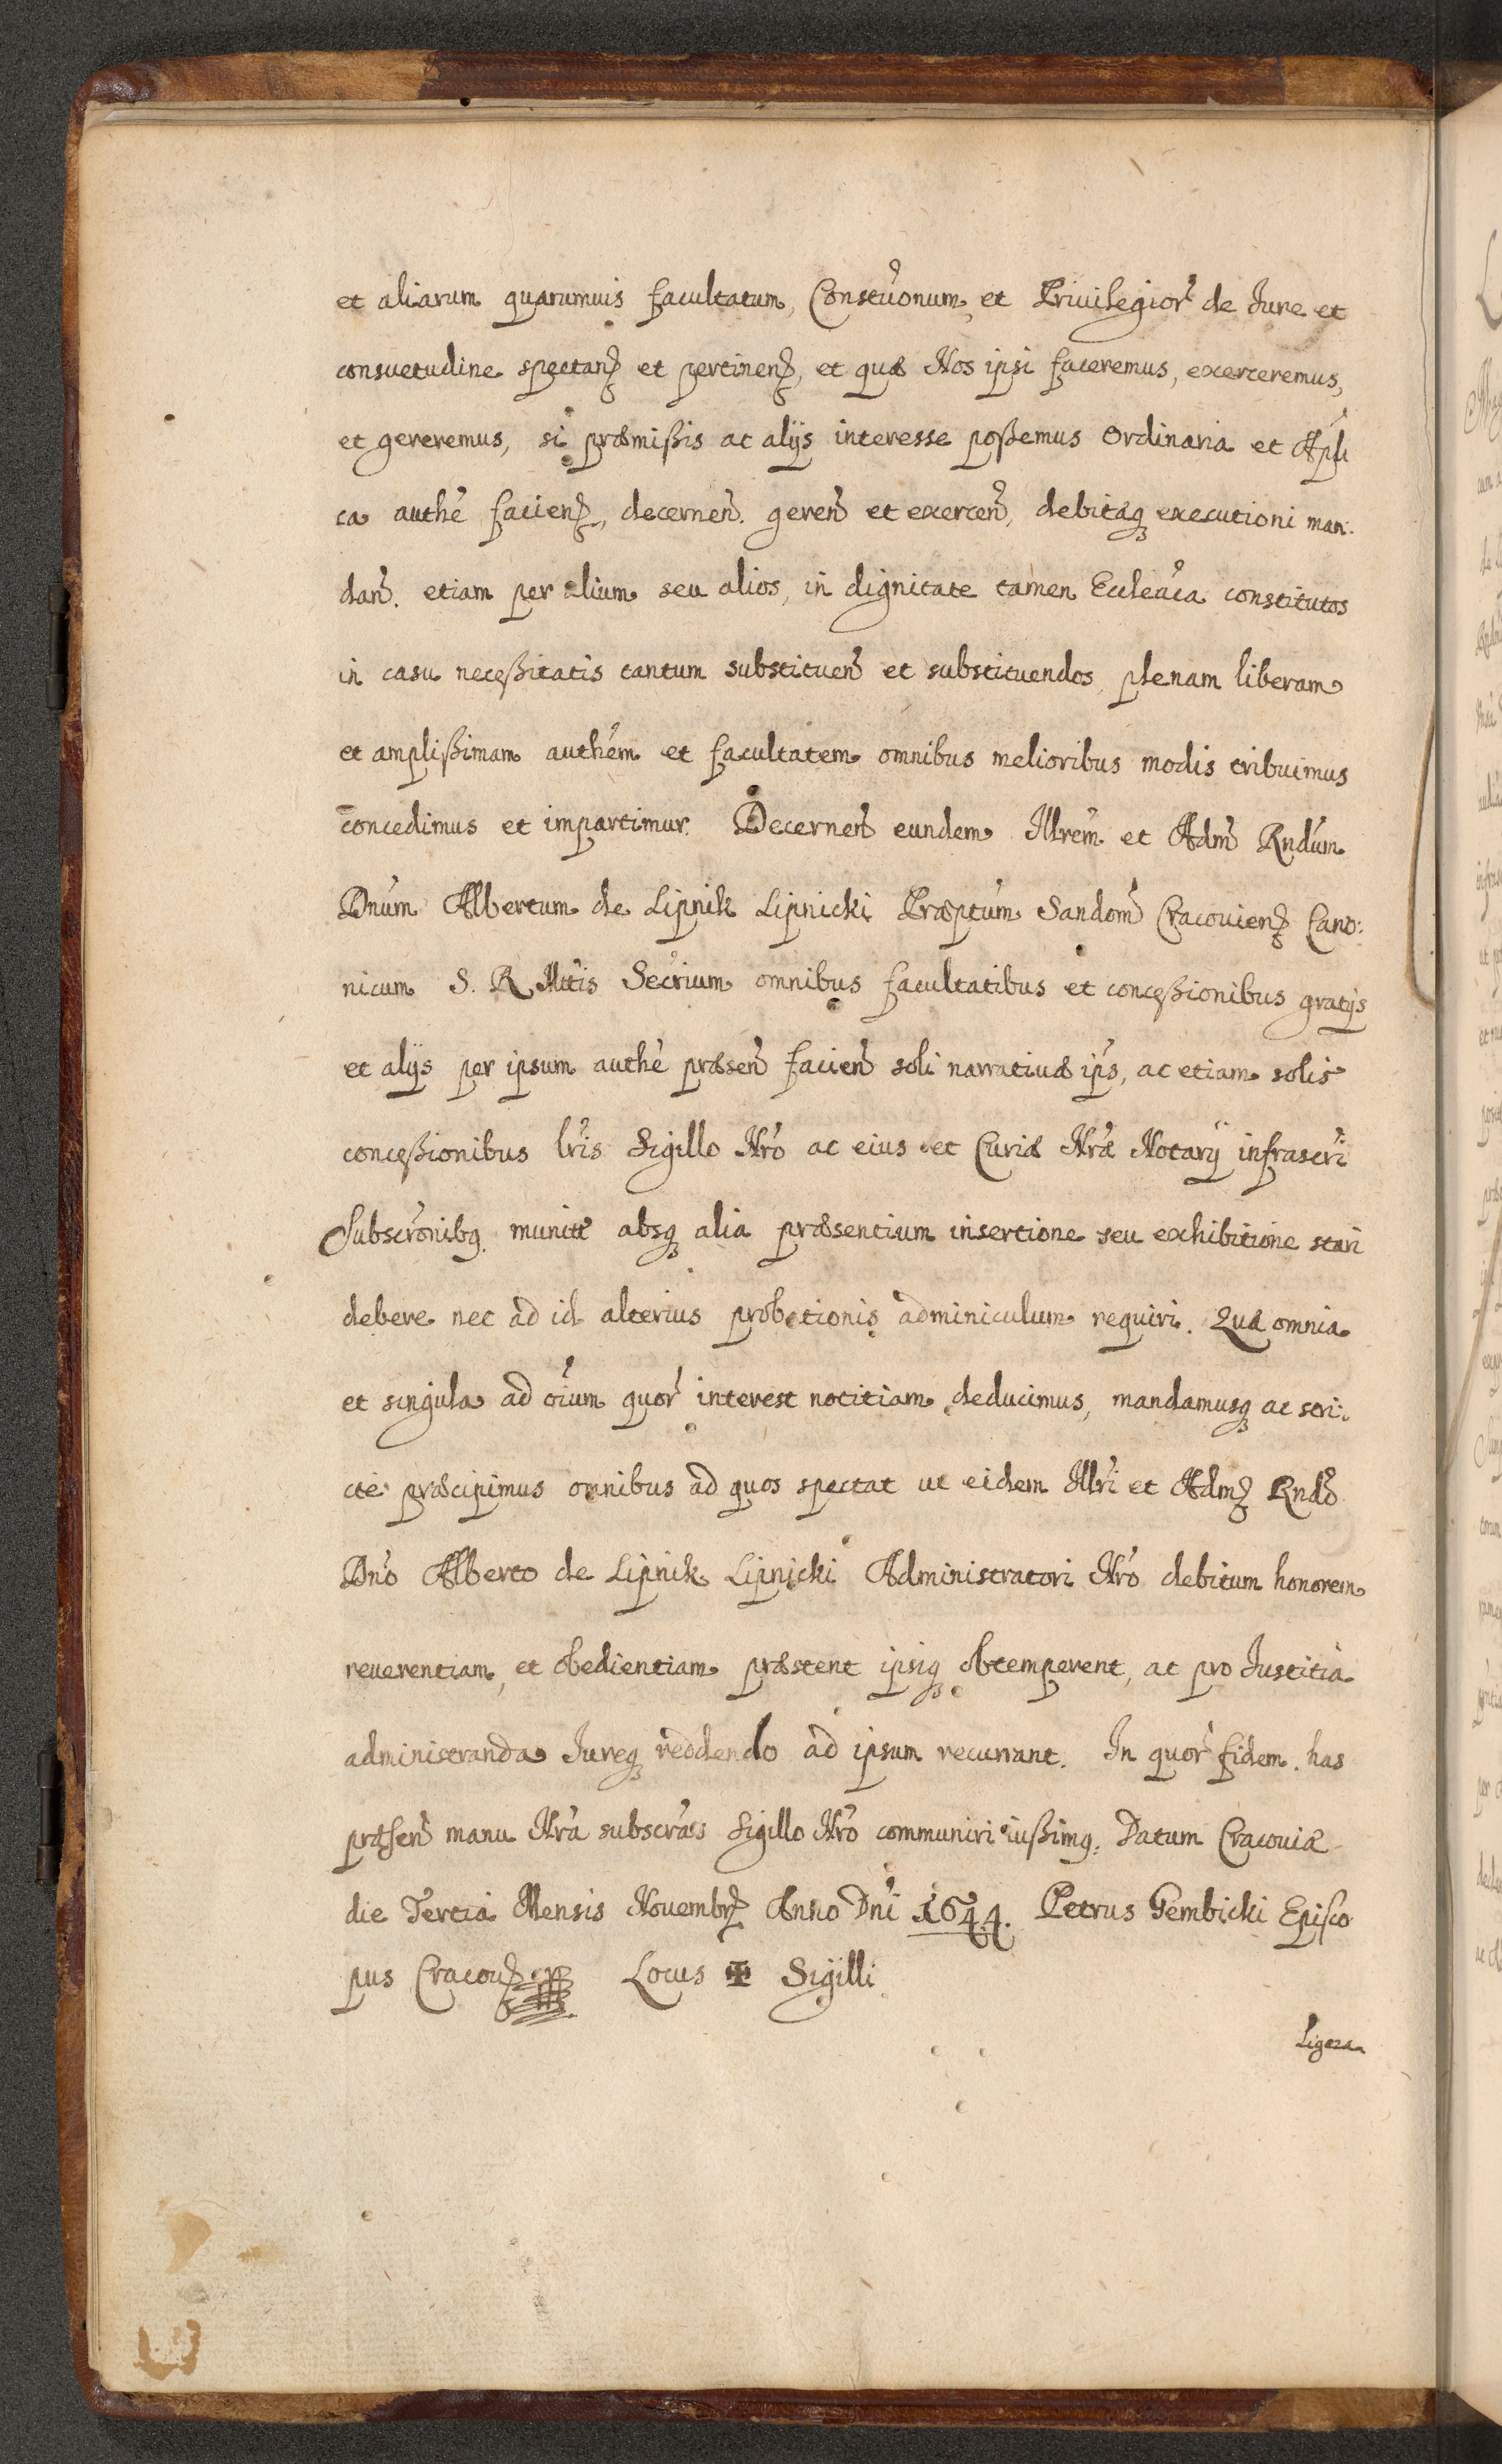 et aliarum quarumuis facultatum, Constv̓onum, et Priuilegior̓ de Jure et
consuetudine spectanꝫ et pertinenꝫ, et quæ Nos ipsi faceremus, exerceremus,
et gereremus, si præmißis ac alijs interesse poßemus Ordinaria et Apli
ca authe̓ facienꝫ, decernen̓. geren̓ et exercen̓, debitæqꝫ executioni man:
dan̓. etiam per alium seu alios, in dignitate tamen Eccleȃca constitutos
in casu neceßitatis tantum substituen̓ et substituendos, plenam liberam
et amplißimam authe̓m et facultatem omnibus melioribus modis tribuimus
concedimus et impartimur. Decernen̓ eundem Illre̓m et Adm̓ Rndu̓m
Dnu̓m Albertum de Lipnik Lipnicki Præptu̓m Sandom̓ Cracouienꝫ Cano:
nicum S. R. Mttis Secr̓ium omnibus facultatibus et conceßionibus gratijs
et alijs per ipsum authe̓ præsen̓ facien̓ soli narratiuæ ips̓, ac etiam solis
conceßionibus lr̓is Sigillo Nr̓o ac eius et Curiæ Nr̓æ Notarij infrascr̓i
Subscr̓onibꝗ munit̓t̓ absqꝫ alia præsentium insertione seu exhibitione stari
debere nec ad id alterius probationis adminiculum requiri. Quæ omnia
et singula ad oı̓um quor̓ interest notitiam deducimus, mandamusqꝫ ac stri:
cte præcipimus omnibus ad quos spectat ut eidem Illr̓i et Admꝫ Rndo̓
Dn̓o Alberto de Lipnik Lipnicki Administratori Nr̓o debitum honorem
reuerentiam, et obedientiam præstent ipsiqꝫ obtemperent, ac pro Justitia
administranda Jureqꝫ reddendo ad ipsum recurrant. In quor̓ fidem has
præsen̓ manu Nr̓a subscr̓as Sigillo Nr̓o communiri iußimꝗ. Datum Cracouiæ
die Tertia Mensis Nouembrꝫ Anno Dn̓i 1644. Petrus Gembicki Episco
pus Cracouꝫ Locus ✠ Sigilli
Ligeza